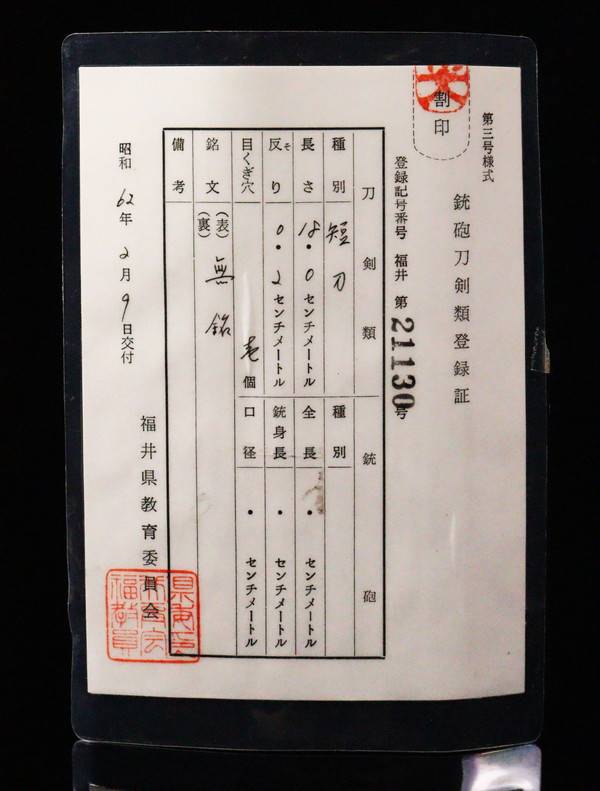 第三号様式
割印
銃砲刀剣類登録証
登録記号番号 福井 第21130号
刀剣類
種別 短刀
長さ 18.0センチメートル
反り(そ) 0.2センチメートル
目くぎ穴 壱個
銘文 (表) (裏) 無銘
備考
銃砲
種別
全長 ・ センチメートル
銃身長 ・ センチメートル
口径 ・ センチメートル
昭和62年2月9日交付
福井県教育委員会